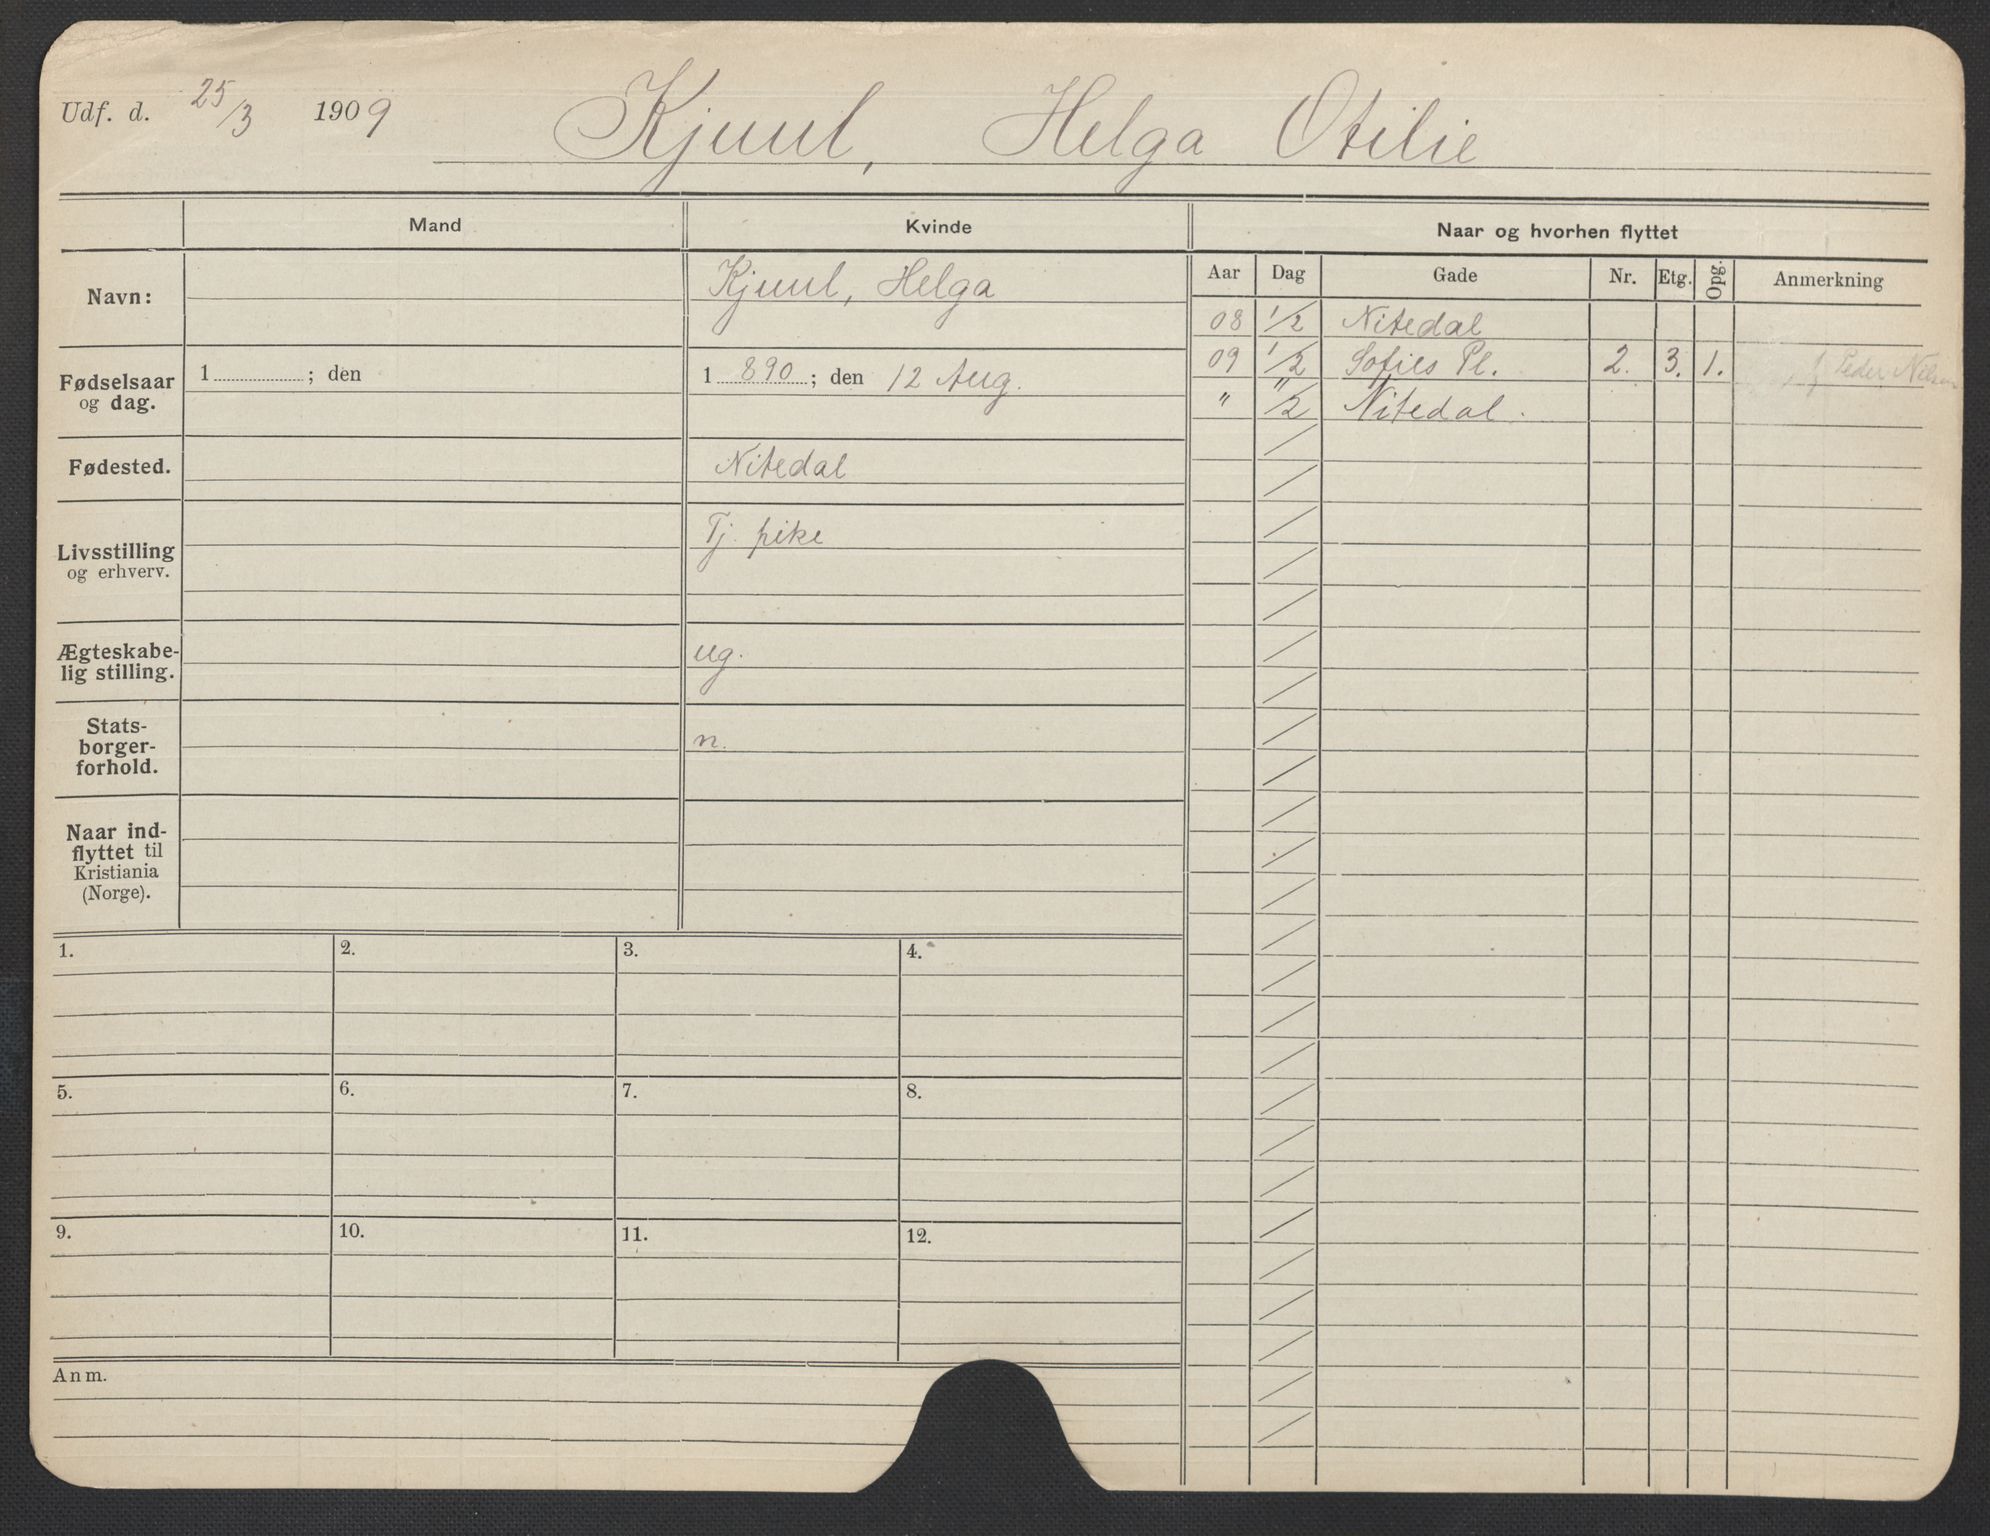 Udf. d. 25/3 1909 Kjuul, Helga Otilie
Mand Kvinde Naar og hvorhen flyttet
Aar Dag Gade Nr. Etg. Opg. Anmerkning
Navn: Kjuul, Helga
08 1/2 Nitedal
09 1/2 Sofies Pl. 2. 3. 1. Peder Nilsen
" "/2 Nitedal.
Fødselsaar
og dag.
1 ; den 1890; den 12 Aug.
Fødested. Nitedal
Livsstilling
og erhverv.
Tj. pike
Ægteskabe-
lig stilling.
ug.
Stats-
borger-
forhold.
n.
Naar ind-
flyttet til
Kristiania
(Norge).
1. 2. 3. 4.
5. 6. 7. 8.
9. 10. 11. 12.
Anm.